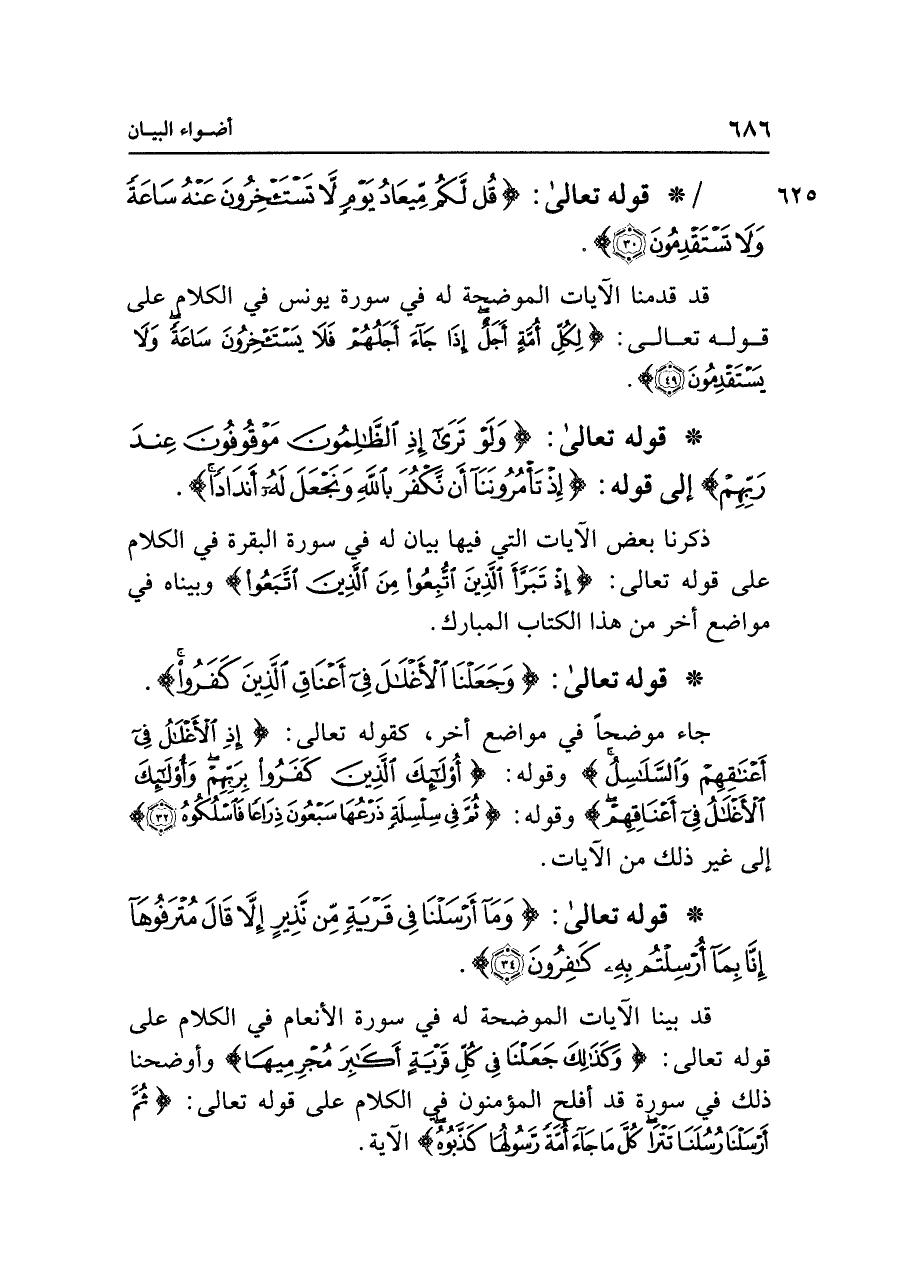 ٦٨٦ أضواء البيان
٦٢٥ / * قوله تعالىٰ: ﴿قُل لَّكُم مِّيعَادُ يَوْمٍ لَّا تَسْتَـْٔخِرُونَ عَنْهُ سَاعَةً
وَلَا تَسْتَقْدِمُونَ ٣٠﴾ .
قد قدمنا الآيات الموضحة له في سورة يونس في الكلام على
قوله تعالى: ﴿لِكُلِّ أُمَّةٍ أَجَلٌ ۚ إِذَا جَآءَ أَجَلُهُمْ فَلَا يَسْتَـْٔخِرُونَ سَاعَةً ۖ وَلَا
يَسْتَقْدِمُونَ ٤٩﴾ .
* قوله تعالىٰ: ﴿وَلَوْ تَرَىٰٓ إِذِ ٱلظَّٰلِمُونَ مَوْقُوفُونَ عِندَ
رَبِّهِمْ﴾ إلى قوله: ﴿إِذْ تَأْمُرُونَنَآ أَن نَّكْفُرَ بِٱللَّهِ وَنَجْعَلَ لَهُۥٓ أَندَادًا ۚ﴾ .
ذكرنا بعض الآيات التي فيها بيان له في سورة البقرة في الكلام
على قوله تعالى: ﴿إِذْ تَبَرَّأَ ٱلَّذِينَ ٱتُّبِعُوا۟ مِنَ ٱلَّذِينَ ٱتَّبَعُوا۟﴾ وبيناه في
مواضع أخر من هذا الكتاب المبارك.
* قوله تعالىٰ: ﴿وَجَعَلْنَا ٱلْأَغْلَٰلَ فِىٓ أَعْنَاقِ ٱلَّذِينَ كَفَرُوا۟ ۚ﴾ .
جاء موضحاً في مواضع أخر، كقوله تعالى: ﴿إِذِ ٱلْأَغْلَٰلُ فِىٓ
أَعْنَٰقِهِمْ وَٱلسَّلَٰسِلُ﴾ وقوله: ﴿أُو۟لَٰٓئِكَ ٱلَّذِينَ كَفَرُوا۟ بِرَبِّهِمْ ۖ وَأُو۟لَٰٓئِكَ
ٱلْأَغْلَٰلُ فِىٓ أَعْنَاقِهِمْ ۖ﴾ وقوله: ﴿ثُمَّ فِى سِلْسِلَةٍ ذَرْعُهَا سَبْعُونَ ذِرَاعًا فَٱسْلُكُوهُ ٣٢﴾
إلى غير ذلك من الآيات.
* قوله تعالىٰ: ﴿وَمَآ أَرْسَلْنَا فِى قَرْيَةٍ مِّن نَّذِيرٍ إِلَّا قَالَ مُتْرَفُوهَآ
إِنَّا بِمَآ أُرْسِلْتُم بِهِۦ كَٰفِرُونَ ٣٤﴾ .
قد بينا الآيات الموضحة له في سورة الأنعام في الكلام على
قوله تعالى: ﴿وَكَذَٰلِكَ جَعَلْنَا فِى كُلِّ قَرْيَةٍ أَكَٰبِرَ مُجْرِمِيهَا﴾ وأوضحنا
ذلك في سورة قد أفلح المؤمنون في الكلام على قوله تعالى: ﴿ثُمَّ
أَرْسَلْنَا رُسُلَنَا تَتْرَا ۖ كُلَّ مَا جَآءَ أُمَّةً رَّسُولُهَا كَذَّبُوهُ ۚ﴾ الآية.